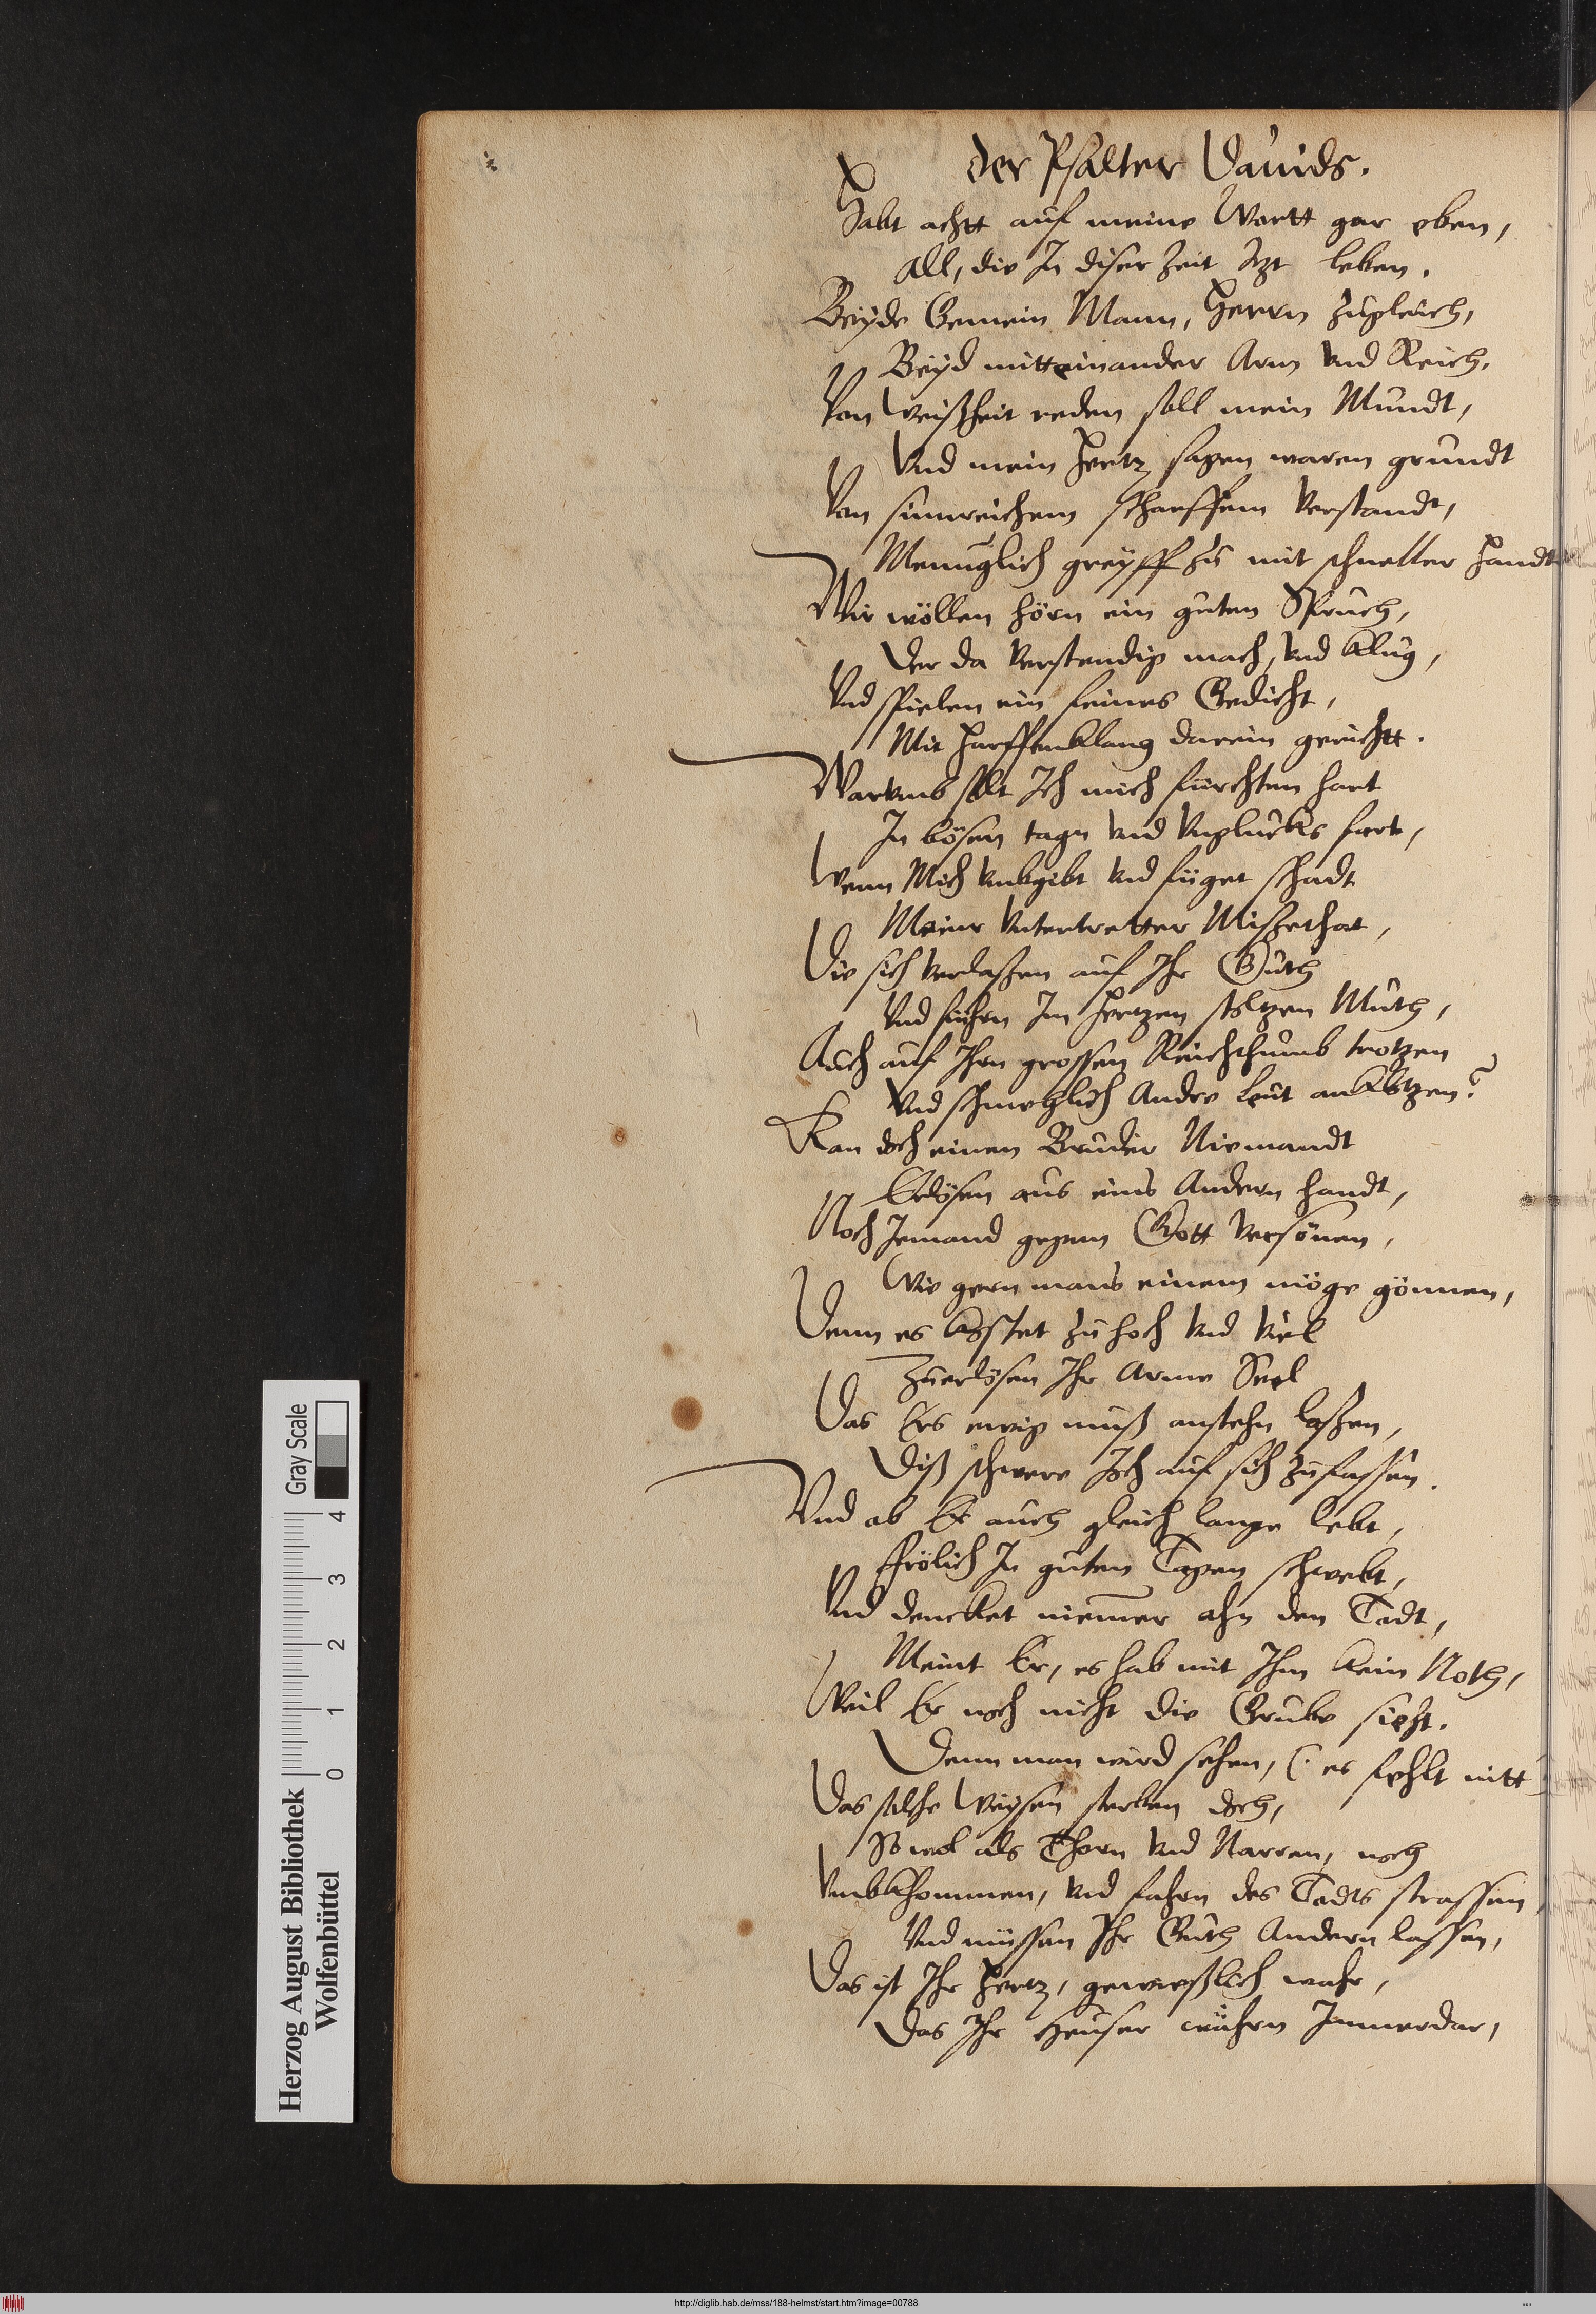 der Psalter Dauids.
Habt achtt auf meine Wortt gar eben,
All, die In diser Zeit Itzt leben.
Beÿde Gemein Mann, Herrn zugleich,
Beÿd mitteinander Arm vnd Reich.
Von Weißheit reden soll mein Mundt,
Vnd mein Hertz sagen waren grundt
Von sinnreichem scharffem Verstandt,
Menniglich greÿff zu mit schneller Handt
Wir wöllen hörn ein guten Spruch,
Der da Verstendig mach, vnd klug,
Vnd spielen ein feines Gedicht,
Mit Harffenklang darein gerichtt.
Warumb solt Ich mich fürchten hart
In bösen tagn vnd Vnglucks fart,
Wenn Mich vmbgibt vnd füget schadt
Meine Vntertretter Mißethat,
Die sich verlaßen auf Ihr Guth
Vnd führn Im Hertzen stoltzen Muth,
Auch auf Ihrn grossen Reichthumb trotzen
Vnd schmehlich Andre Leut anklotzen?
Kan doch einen Bruder Niemandt
Erlösen aus eins Andern handt,
Noch Jemand gegem Gott Versönen,
Wie gern mans einem möge gönnen,
Denn es kostet zu hoch vnd viel
Zuerlösen Ihr Arme Seel
Das Ers ewig muß anstehn laßen,
Diß schwere Joch auf sich zufassen.
Vnd ob Er auch gleich lange lebt,
Frölich In guten Tagen schwebt,
Vnd dencket niemer ahn den Todt,
Meint Er, es hab mit Ihm kein Noth,
Weil Er noch nicht die Grube sieht.
Denn man wird sehen, (: es fehlt nitt
Das solche Weÿsen sterben doch,
So wol als Thorn vnd Narren, noch
Vmbkhommen, vnd fahrn des Todts strassen
Vnd müssen Ihr Guth Andern lassen,
Das ist Ihr Hertz, gewießlich wahr,
Das Ihr Heuser währn Immerdar,
Herzog August Bibliothek
Wolfenbüttel
0 1 2 3 4
Gray Scale
http://diglib.hab.de/mss/188-helmst/start.htm?image=00788